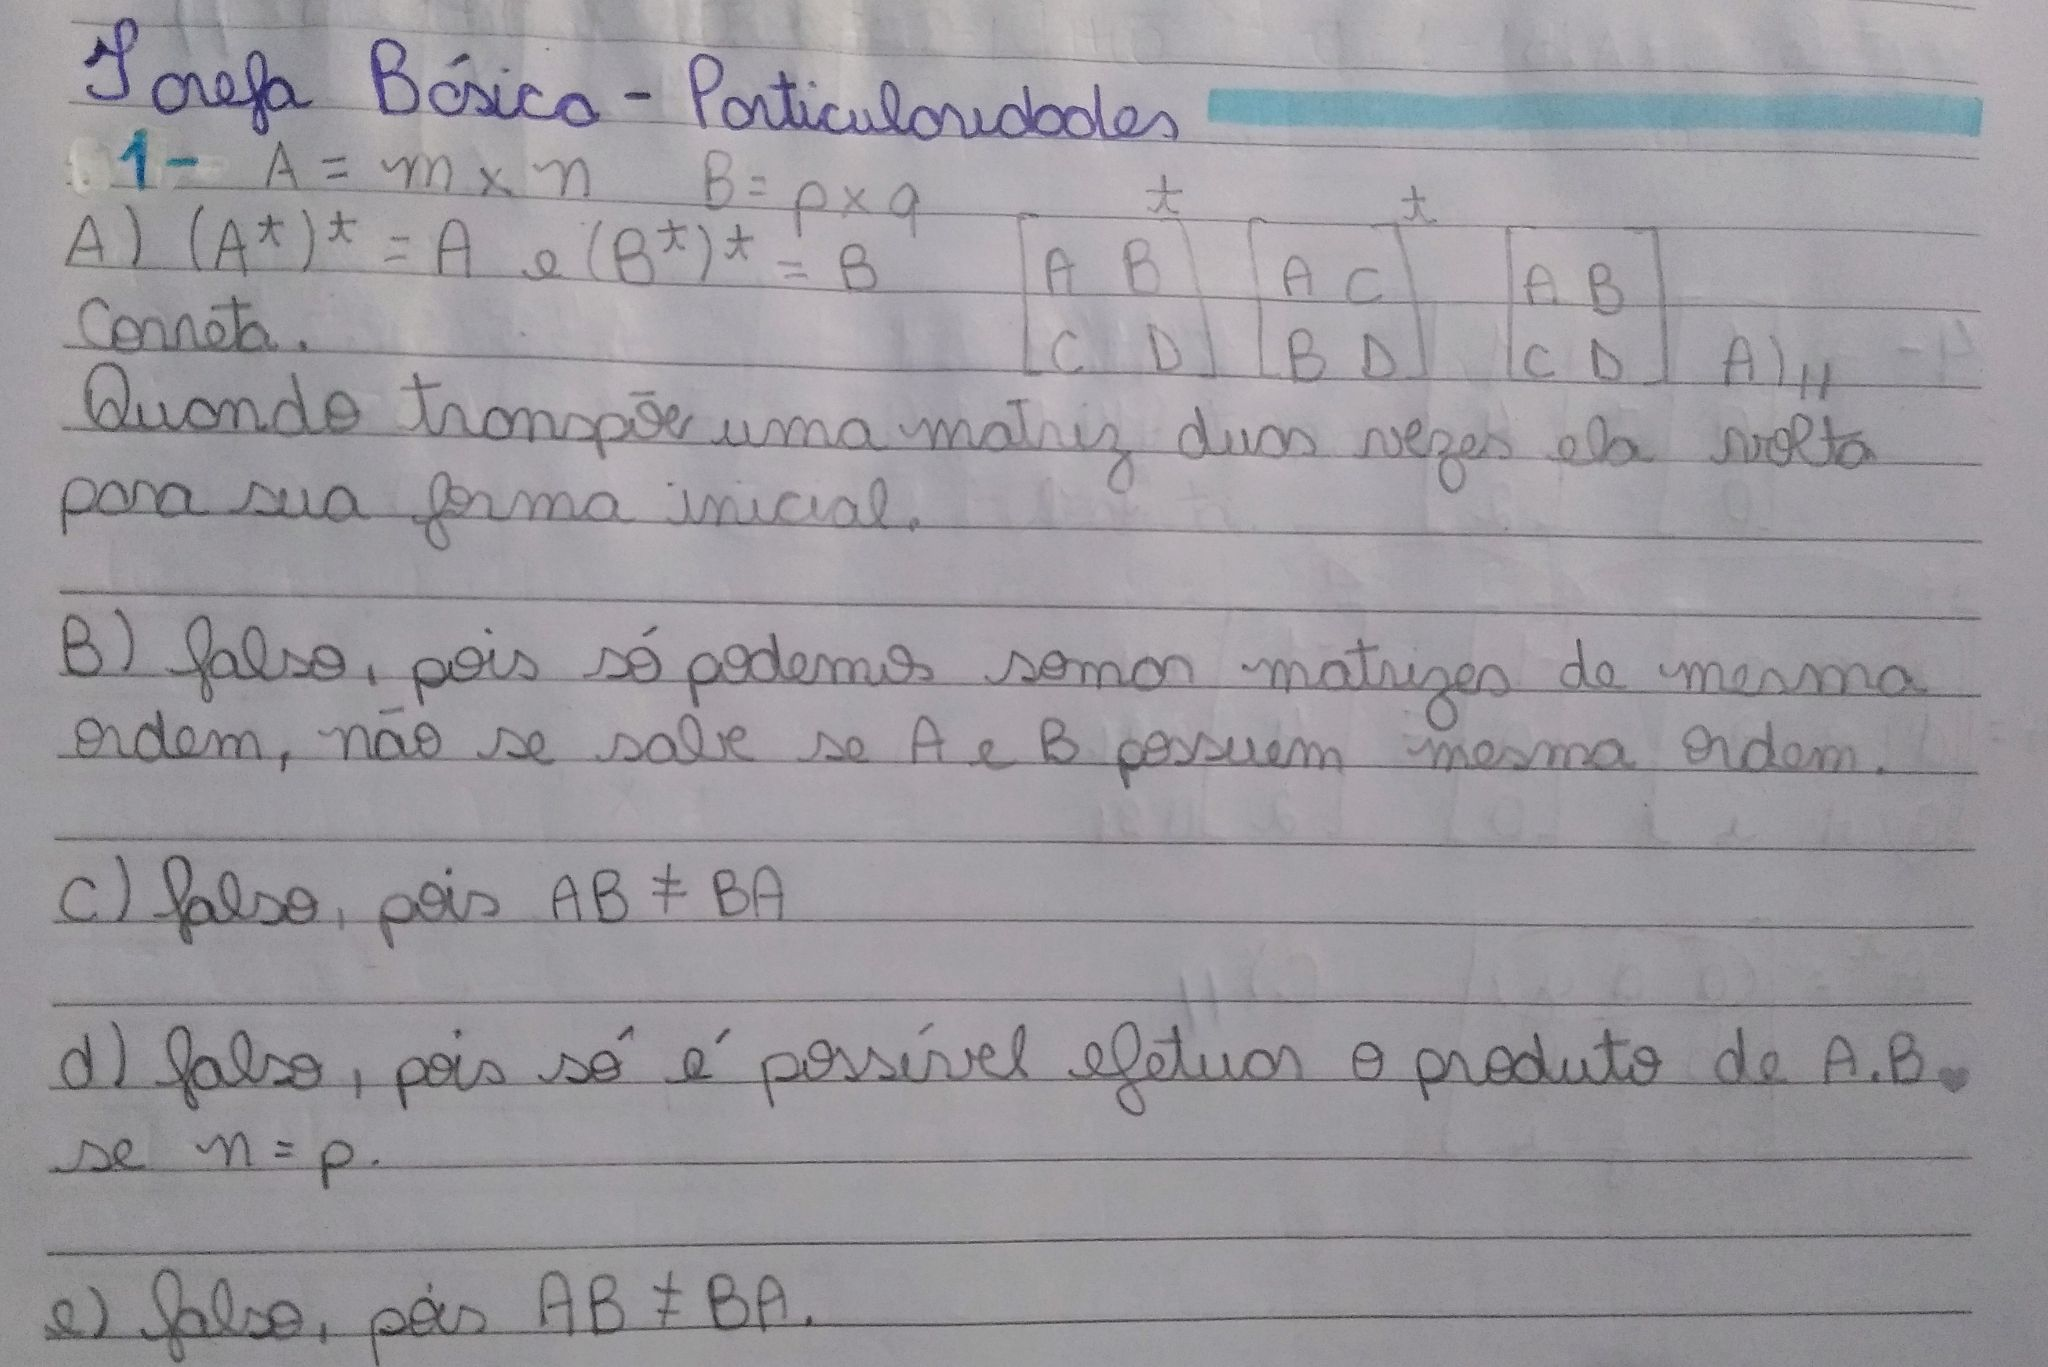 Tarefa Básica - Particularidades
1- A = m x n B = p x q
A) (A^t)^t = A e (B^t)^t = B
[A B; C D]^t [A C; B D]^t [A B; C D] A)//
Correta.
Quando transpõe uma matriz duas vezes ela volta
para sua forma inicial.
B) falso, pois só podemos somar matrizes de mesma
ordem, não se sabe se A e B possuem mesma ordem.
c) falso, pois AB ≠ BA
d) falso, pois só é possível efetuar o produto de A.B
se n = p.
e) falso, pois AB ≠ BA.